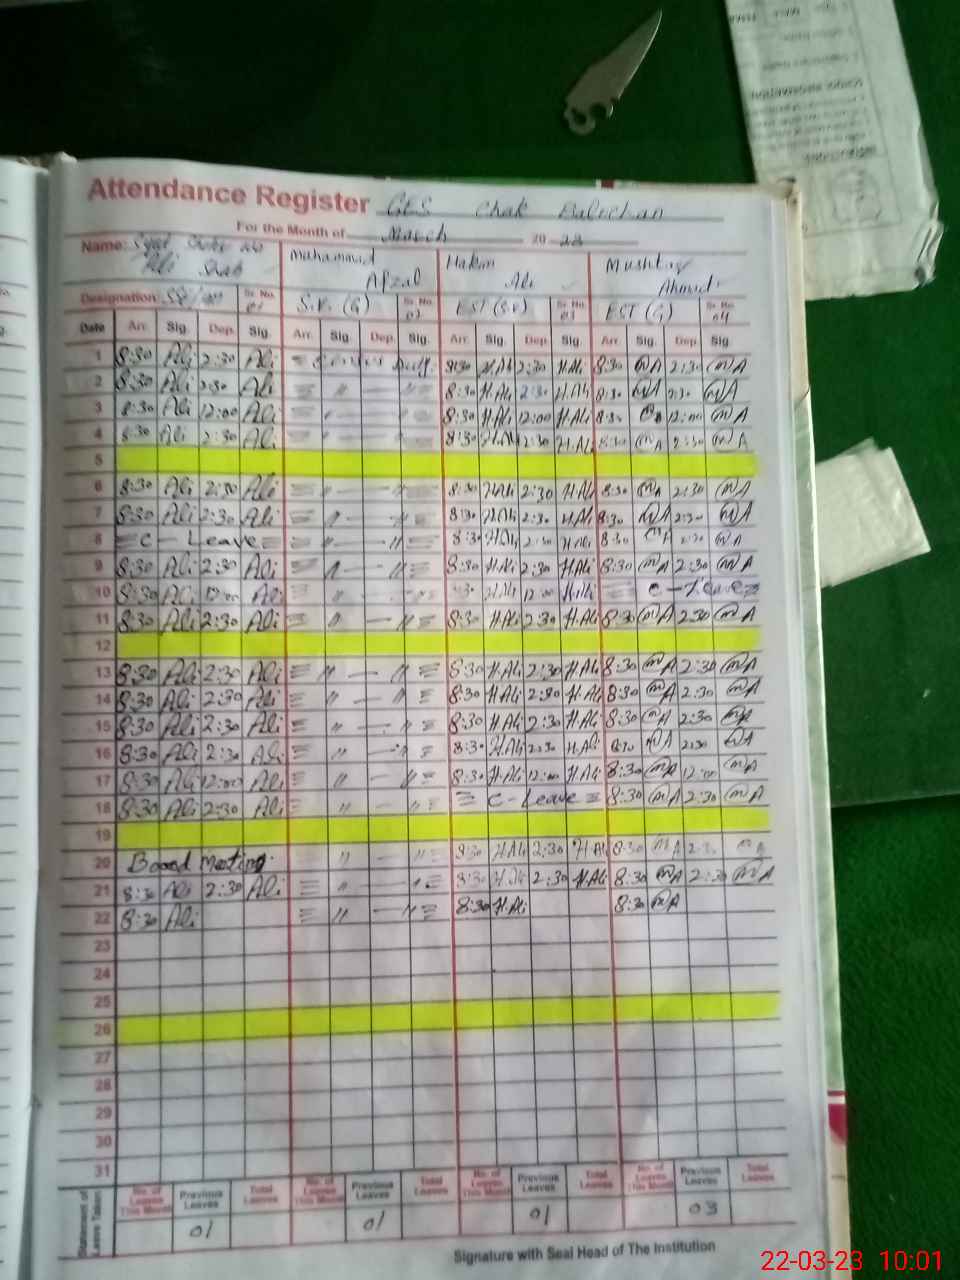 Attendance Register GES Chak
For the Month of March 20 23
Name: Ali Shah Muhammad Afzal Hakim Ali Mushtaq Ahmad
Designation Sr. No. S.V. (G) Sr. No. EST Sr. No. 03 EST (G) Sr. No. 04
Date Arr. Sig. Dep. Sig. Arr. Sig. Dep. Sig. Arr. Sig. Dep. Sig. Arr. Sig. Dep. Sig.
1 8:30 Ali 2:30 Ali 8:30 H.Ali 2:30 H.Ali 8:30 MA 2:30 MA
2 8:30 Ali 2:30 Ali = " — " = 8:30 H.Ali 2:30 H.Ali 8:30 MA 2:30 MA
3 8:30 Ali 12:00 Ali = " — " = 8:30 H.Ali 12:00 H.Ali 8:30 12:00 MA
4 8:30 Ali 2:30 Ali = " — " = 8:30 H.Ali 2:30 H.Ali 8:30 MA 2:30 MA
5
6 8:30 Ali 2:30 Ali = " — " = 8:30 H.Ali 2:30 H.Ali 8:30 MA 2:30 MA
7 8:30 Ali 2:30 Ali = " — " = 8:30 H.Ali 2:30 H.Ali 8:30 MA 2:30 MA
8 = C - Leave = = " — " = 8:30 H.Ali 2:30 H.Ali 8:30 MA 2:30 MA
9 8:30 Ali 2:30 Ali = " — " = 8:30 H.Ali 2:30 H.Ali 8:30 MA 2:30 MA
10 8:30 Ali 12:00 Ali = " — " = 8:30 H.Ali 12:00 H.Ali = C - Leave =
11 8:30 Ali 2:30 Ali = " — " = 8:30 H.Ali 2:30 H.Ali 8:30 MA 2:30 MA
12
13 8:30 Ali 2:30 Ali = " — " = 8:30 H.Ali 2:30 H.Ali 8:30 MA 2:30 MA
14 8:30 Ali 2:30 Ali = " — " = 8:30 H.Ali 2:30 H.Ali 8:30 MA 2:30 MA
15 8:30 Ali 2:30 Ali = " — " = 8:30 H.Ali 2:30 H.Ali 8:30 MA 2:30 MA
16 8:30 Ali 2:30 Ali = " — " = 8:30 H.Ali 2:30 H.Ali 8:30 MA 2:30 MA
17 8:30 Ali 12:00 Ali = " — " = 8:30 H.Ali 12:00 H.Ali 8:30 MA 12:00 MA
18 8:30 Ali 2:30 Ali = " — " = = C - Leave = 8:30 MA 2:30 MA
19
20 Board Meeting. = " — " = 8:30 H.Ali 2:30 H.Ali 8:30 MA 2:30 MA
21 8:30 Ali 2:30 Ali = " — " = 8:30 H.Ali 2:30 H.Ali 8:30 MA 2:30 MA
22 8:30 Ali = " — " = 8:30 H.Ali 8:30 MA
23
24
25
26
27
28
29
30
31
Statement of Leave Taken No. of Leaves This Month Previous Leaves Total Leaves No. of Leaves This Month Previous Leaves Total Leaves No. of Leaves This Month Previous Leaves Total Leaves No. of Leaves This Month Previous Leaves Total Leaves
01 01 01 03
Signature with Seal Head of The Institution
22-03-23 10:01